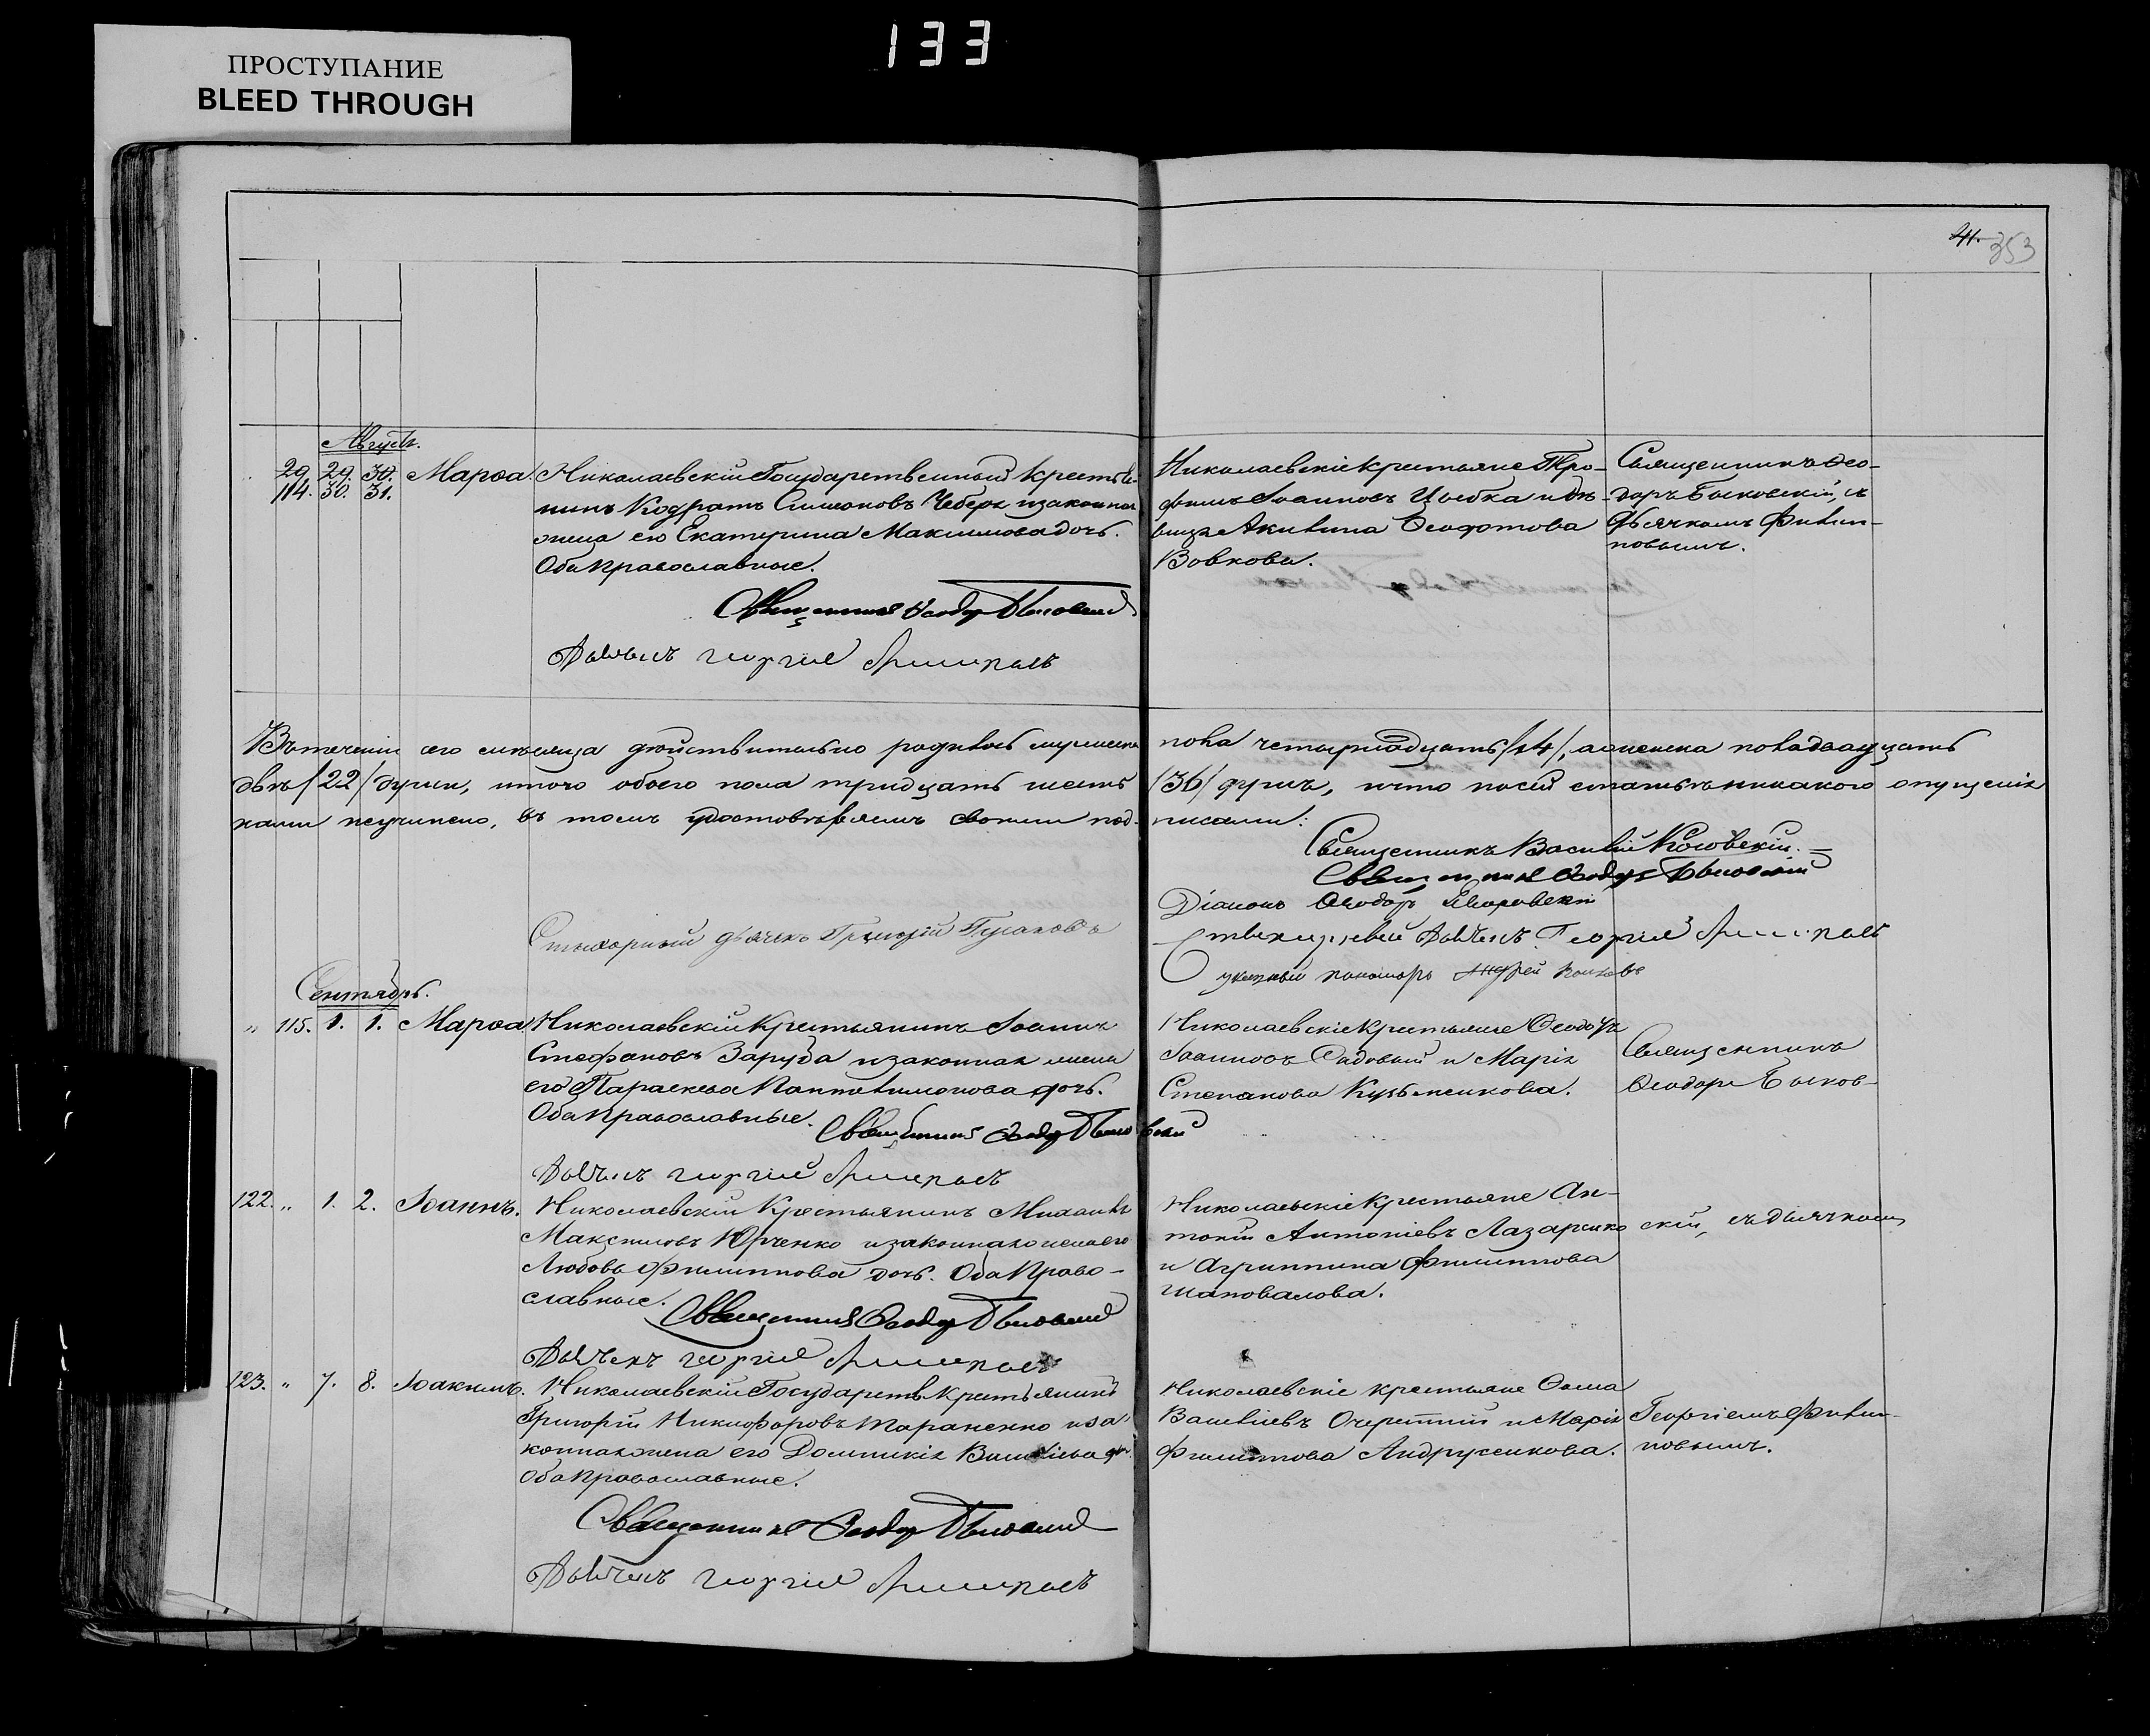 133
ПРОСТУПАНИЕ
BLEED THROUGH
41. 353
Августъ.
29. 29. 30.
114. 30. 31.
Марѳа.
Николаевскій Государственный крестья-
нинъ Кодратъ Симоновъ Чеберк изаконная
жена его Екатерина Максимова дочь.
Оба православные.
Священникъ Ѳеодоръ Быковскій
Дьячекъ Георгій
Николаевскіе крестьяне Тро-
фимъ Іоанновъ Цыбка и дѣ-
вица Акилина Ѳеофотова
Вовкова.
Священникъ Ѳео-
доръ Быковскій, съ
Дьячкомъ Филип-
повымъ.
Въ теченіи сего мѣсяца дѣйствительно родилось мужеска
двѣ /22/ души, итого обоего пола тридцать шесть
нами неучинено, въ томъ удостовѣряемъ своими под-
пола четырнадцать /14/, а женска пола двадцать
/36/ душъ, и что по сей статьѣ никакого опущенія
писами:
Священникъ Василій
Священникъ Ѳеодоръ Быковскій
Діаконъ Ѳеодоръ
Стихарный дьячекъ Григорій
Дьячекъ Георгій
пономарь Андрей
Сентябрь.
" 115. 1. 1. Марѳа
Николаевскій Крестьянинъ Іоаннъ
Стефановъ Заруда изаконная жена
его Параскева Пантелимонова дочь.
Оба православные.
Священникъ Ѳеодоръ Быковскій
Дьячекъ Георгій
Николаевскіе крестьяне Ѳеодоръ
Іоанновъ Садовый и Марія
Степанова Кузьменкова.
Священникъ
Ѳеодоръ Быков-
122. " 1. 2. Іоаннъ.
Николаевскій Крестьянинъ Михаилъ
Максимовъ Юрченко изаконная жена его
Любовь Филиппова дочь. Оба Право-
славные.
Священникъ Ѳеодоръ Быковскій
Дьячекъ Георгій
Николаевскіе крестьяне Ан-
тоній Антоніевъ Лазаренко
и Агриппина Филиппова
Шаповалова.
скій, съ дьячкомъ
123. " 7. 8. Іоакимъ.
Николаевскій Государств. крестьянинъ
Григорій Никифоровъ Тараненко иза-
конная жена его Домникія Васильева дочь
Оба Православные.
Священникъ Ѳеодоръ Быковскій
Дьячекъ Георгій
Николаевскіе крестьяне Ѳома
Василіевъ Очеретній и Марія
Филиппова Андрусенкова.
Георгіемъ Филип-
повымъ.